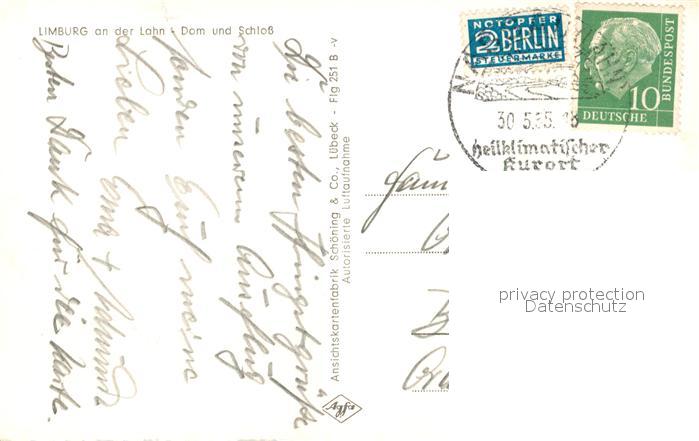 LIMBURG an der Lahn - Dom und Schloß
Die besten Pfingstgrüße
von unserem Ausflug
senden Euch meine
Lieben Erna +
Besten Dank für die Karte.
Ansichtskartenfabrik Schöning & Co., Lübeck - Flg 251 B -v
Autorisierte Luftaufnahme
Agfa
NOTOPFER
2 BERLIN
STEUERMARKE
10
DEUTSCHE
BUNDESPOST
30.5.55.
heilklimatischer
Kurort
Fam
privacy protection
Datenschutz